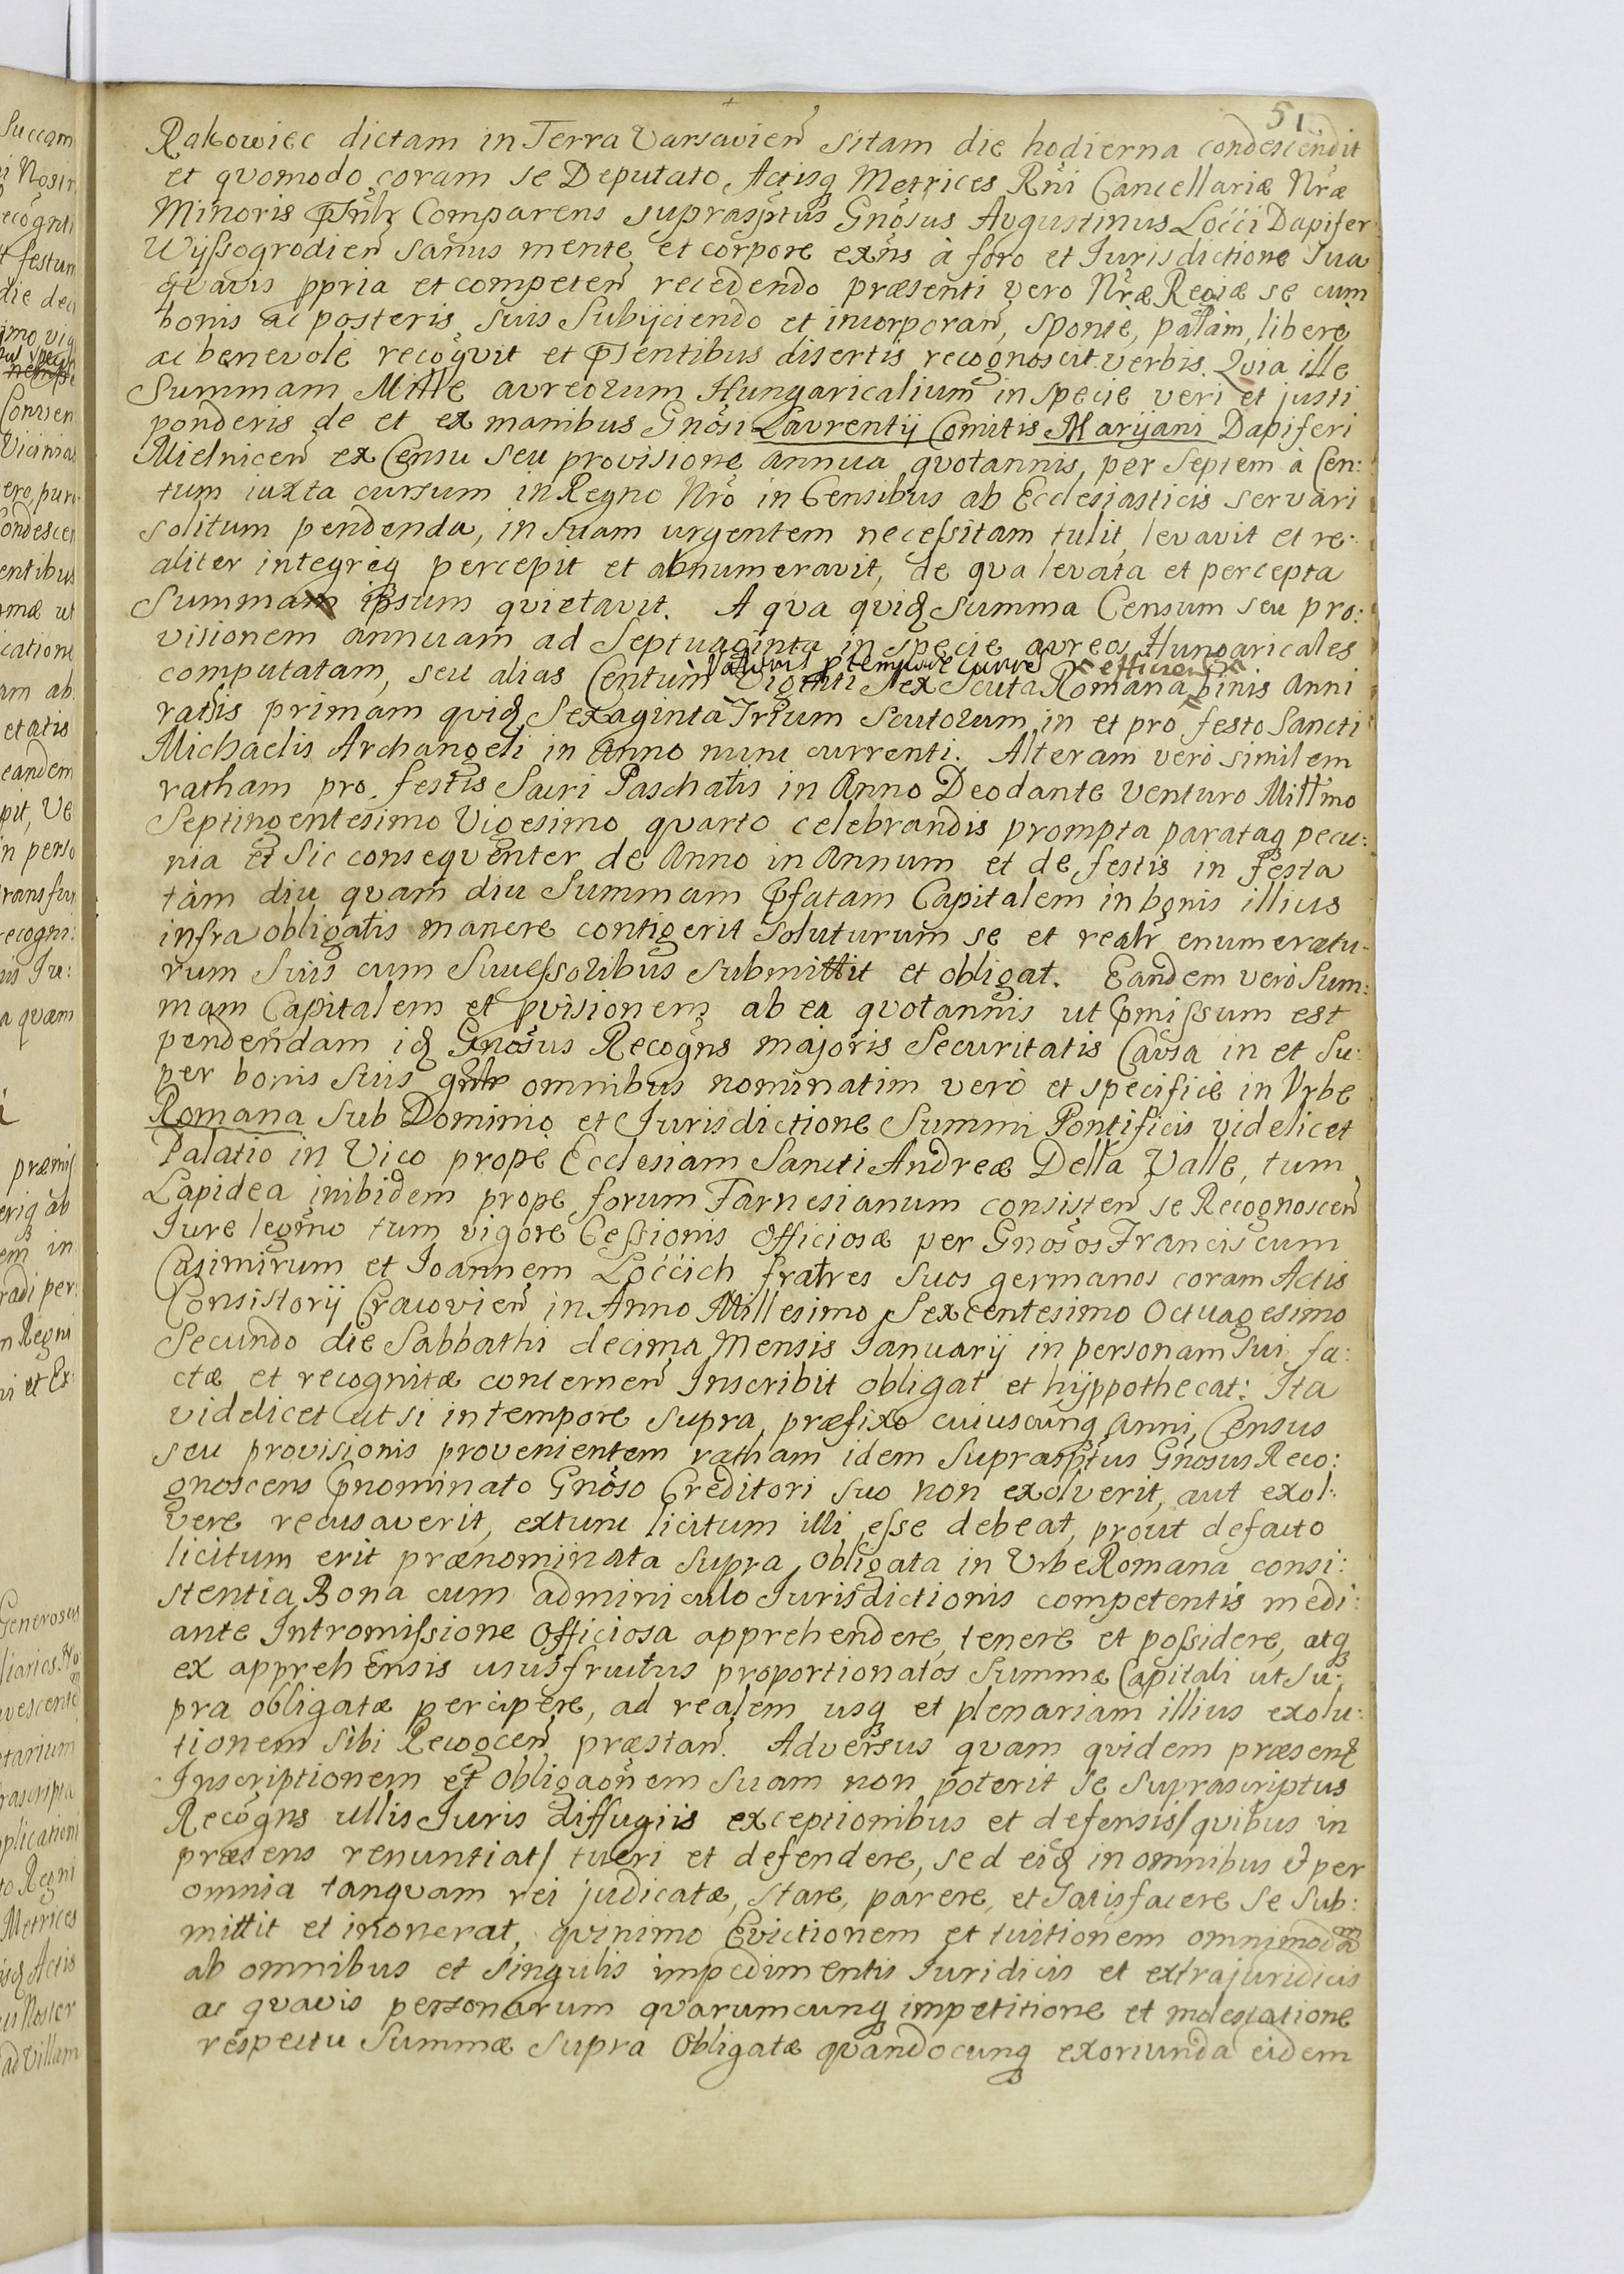 51
Rakowiec dictam in Terra Varsavien̄ sitam die hodierna condescendit
et quomodo coram se Deputato, Actisq Metrices Rn̄i Cancellariæ Nr̄æ
Minoris Comparens suprasptus Gnosus Augustinus Locci Dapifer
Wyssogrodien̄ sanus mente et corpore exn̄s à foro et Iurisdictione sua
quavis ppria et competen̄ recedendo præsenti vero Nr̄æ Regiæ se cum
bonis ac posteris suis subijciendo et incorporan̄, sponte, palàm, liberè
ac benevolè recognvit et Psentibus disertis recognoscit verbis. Quia ille
Summam Mille avreorum Hungaricalium in specie veri et justi
ponderis de et ex manibus Gnosi Lavrentij Comitis Marijani Dapiferi
Mielnicen̄ ex Censu seu provisione annua quotannis, per septem à Cen:
tum iuxta cursum in Regno Nr̄o in Censibus ab Ecclesiasticis servari
solitum pendenda, in suam urgentem necessitam tulit, levavit et re:
aliter integreq percepit et abnumeravit, de qua levata et percepta
Summam ipsum quietavit. A qua quid Summa Censum seu pro:
visionem annuam ad Septuaginta in specie avreos Hungaricales
valoris p tempore curren efficien
computatam, seu alias Centum Viginti sex Scuta Romana binis Anni
rathis primam quid Sexaginta Trium Scutorum in et pro festo Sancti
Michaelis Archangeli in Anno nunc currenti. Alteram verò similem
ratham pro festis Sacri Paschatis in Anno Deodante venturo Mill̄mo
Septingentesimo Vigesimo quarto celebrandis prompta parataq pecu:
nia et sic consequenter de Anno in Annum et de festis in festa
tàm diu quam diu Summam Pfatam Capitalem in bonis illius
infra obligatis manere contigerit soluturum se et realr enumeratu-
rum suis cum Successoribus submittit et obligat. Eandem verò Sum:
mam Capitalem et pvisionem ab ea quotannis ut Pmissum est
pendendam id Gnosus Recogns majoris Securitatis Causa in et Su:
per bonis suis gnlr omnibus nominatim verò et specificè in Vrbe
Romana sub Dominio et Iurisdictione Summi Pontificis videlicet
Palatio in Vico propè Ecclesiam Sancti Andreæ Della Valle, tum
Lapidea inibidem prope forum Farnesianum consisten̄ se Recognoscen̄
Iure legmo tum vigore Cessionis Officiosæ per Gnosos Franciscum
Casimirum et Ioannem Loccich fratres suos germanos coram Actis
Consistorij Cracovien̄ in Anno Millesimo Sexcentesimo Octuagesimo
Secundo die Sabbathi decima Mensis Ianuarij in personam sui fa:
ctæ et recognitæ concernen̄ Inscribit obligat et hyppothecat: Ita
videlicet ut si in tempore supra præfixo cuiuscunq Anni, Census
seu provisionis provenientem ratham idem suprasptus Gnosus Reco:
gnoscens Pnominato Gnoso Creditori suo non exolverit, aut exol:
vere recusaverit, extunc licitum illi esse debeat, prout defacto
licitum erit prænominata supra obligata in Vrbe Romana consi:
stentia Bona cum adminiculo Iurisdictionis competentis medi:
ante Intromissione Officiosa apprehendere, tenere et possidere, atq
ex apprehensis ususfructus proportionatos Summæ Capitali ut su:
pra obligatæ percipere, ad realem usq et plenariam illius exolu:
tionem sibi Recogcen̄ præstan̄. Adversus quam quidem præsen
Inscriptionem et Obligaon̄em suam non poterit se suprascriptus
Recogns ullis Iuris diffugiis exceptionibus et defensis/quibus in
præsens renuntiat/ tueri et defendere, sed eid in omnibus et per
omnia tanquam rei judicatæ, stare, parere, et satisfacere se sub:
mittit et inonerat, quinimo Evictionem et tuitionem omnimodam
ab omnibus et singulis impedimentis Iuridicis et extrajuridicis
ac quavis personarum quarumcunq impetitione et molestatione
respectu Summæ supra Obligatæ quandocunq exoriunda eidem